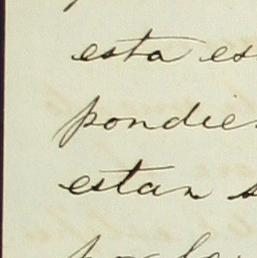 esta es
pondie
estan s